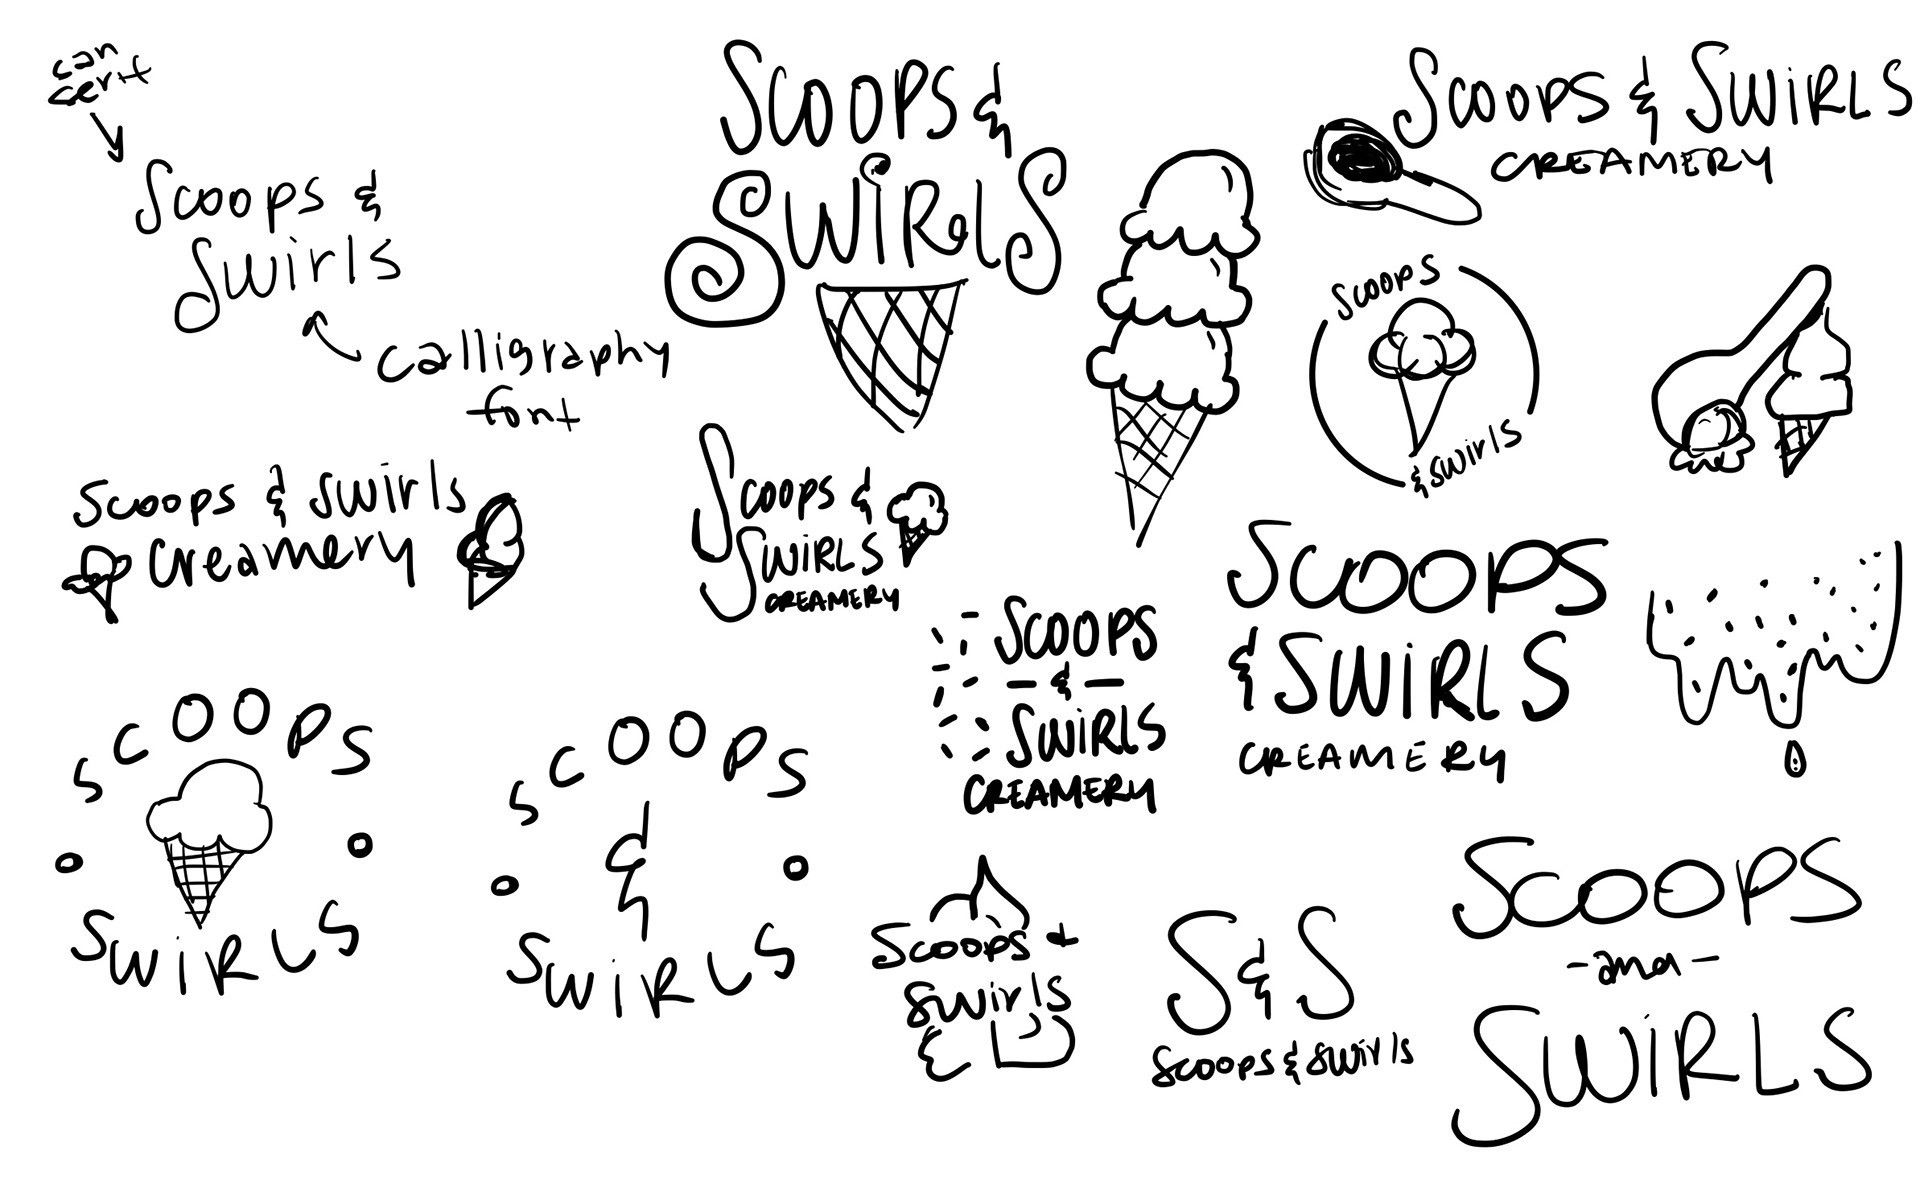 can
serif
Scoops &
Swirls
calligraphy
font
SCOOPS &
SWiRLS
SCOOPS & SWiRLS
CREAMERY
SCOOPS
& SWirlS
Scoops & swirls
Creamery
Scoops &
SWiRLS
CREAMERY
SCOOPS
&
SWiRLS
CREAMERY
SCOOPS
& SWiRLS
CREAMERY
SCOOPS
SWiRLS
SCOOPS
&
SWiRLS
Scoops &
Swirls
S&S
Scoops & Swirls
SCOOPS
- and -
SWiRLS